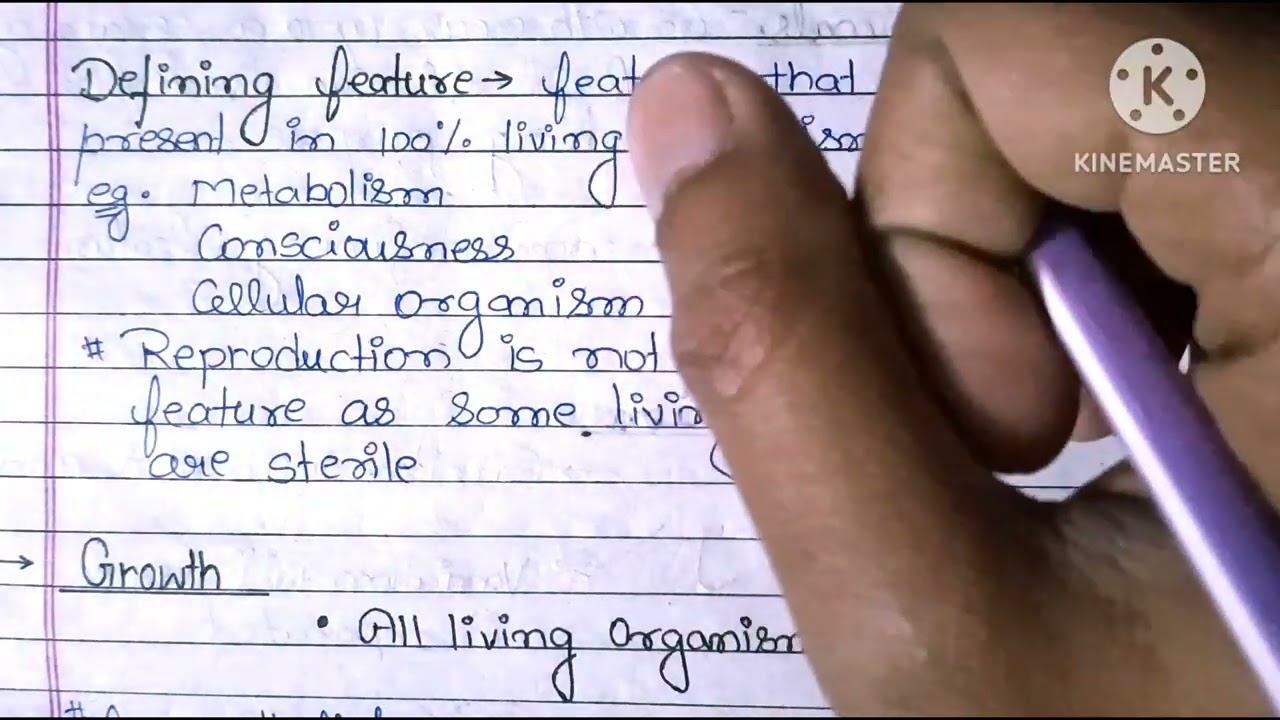 Defining feature → feat that
present in 100% living
eg. Metabolism
Consciousness
Cellular organism
# Reproduction is not
feature as some living
are sterile
→ Growth
• All living organism
KINEMASTER